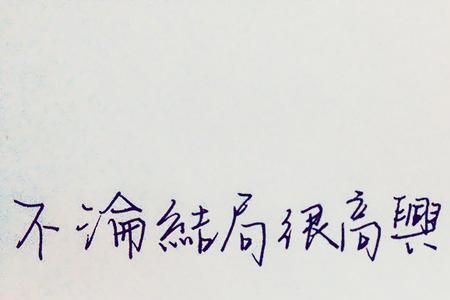 不淪結局很高興